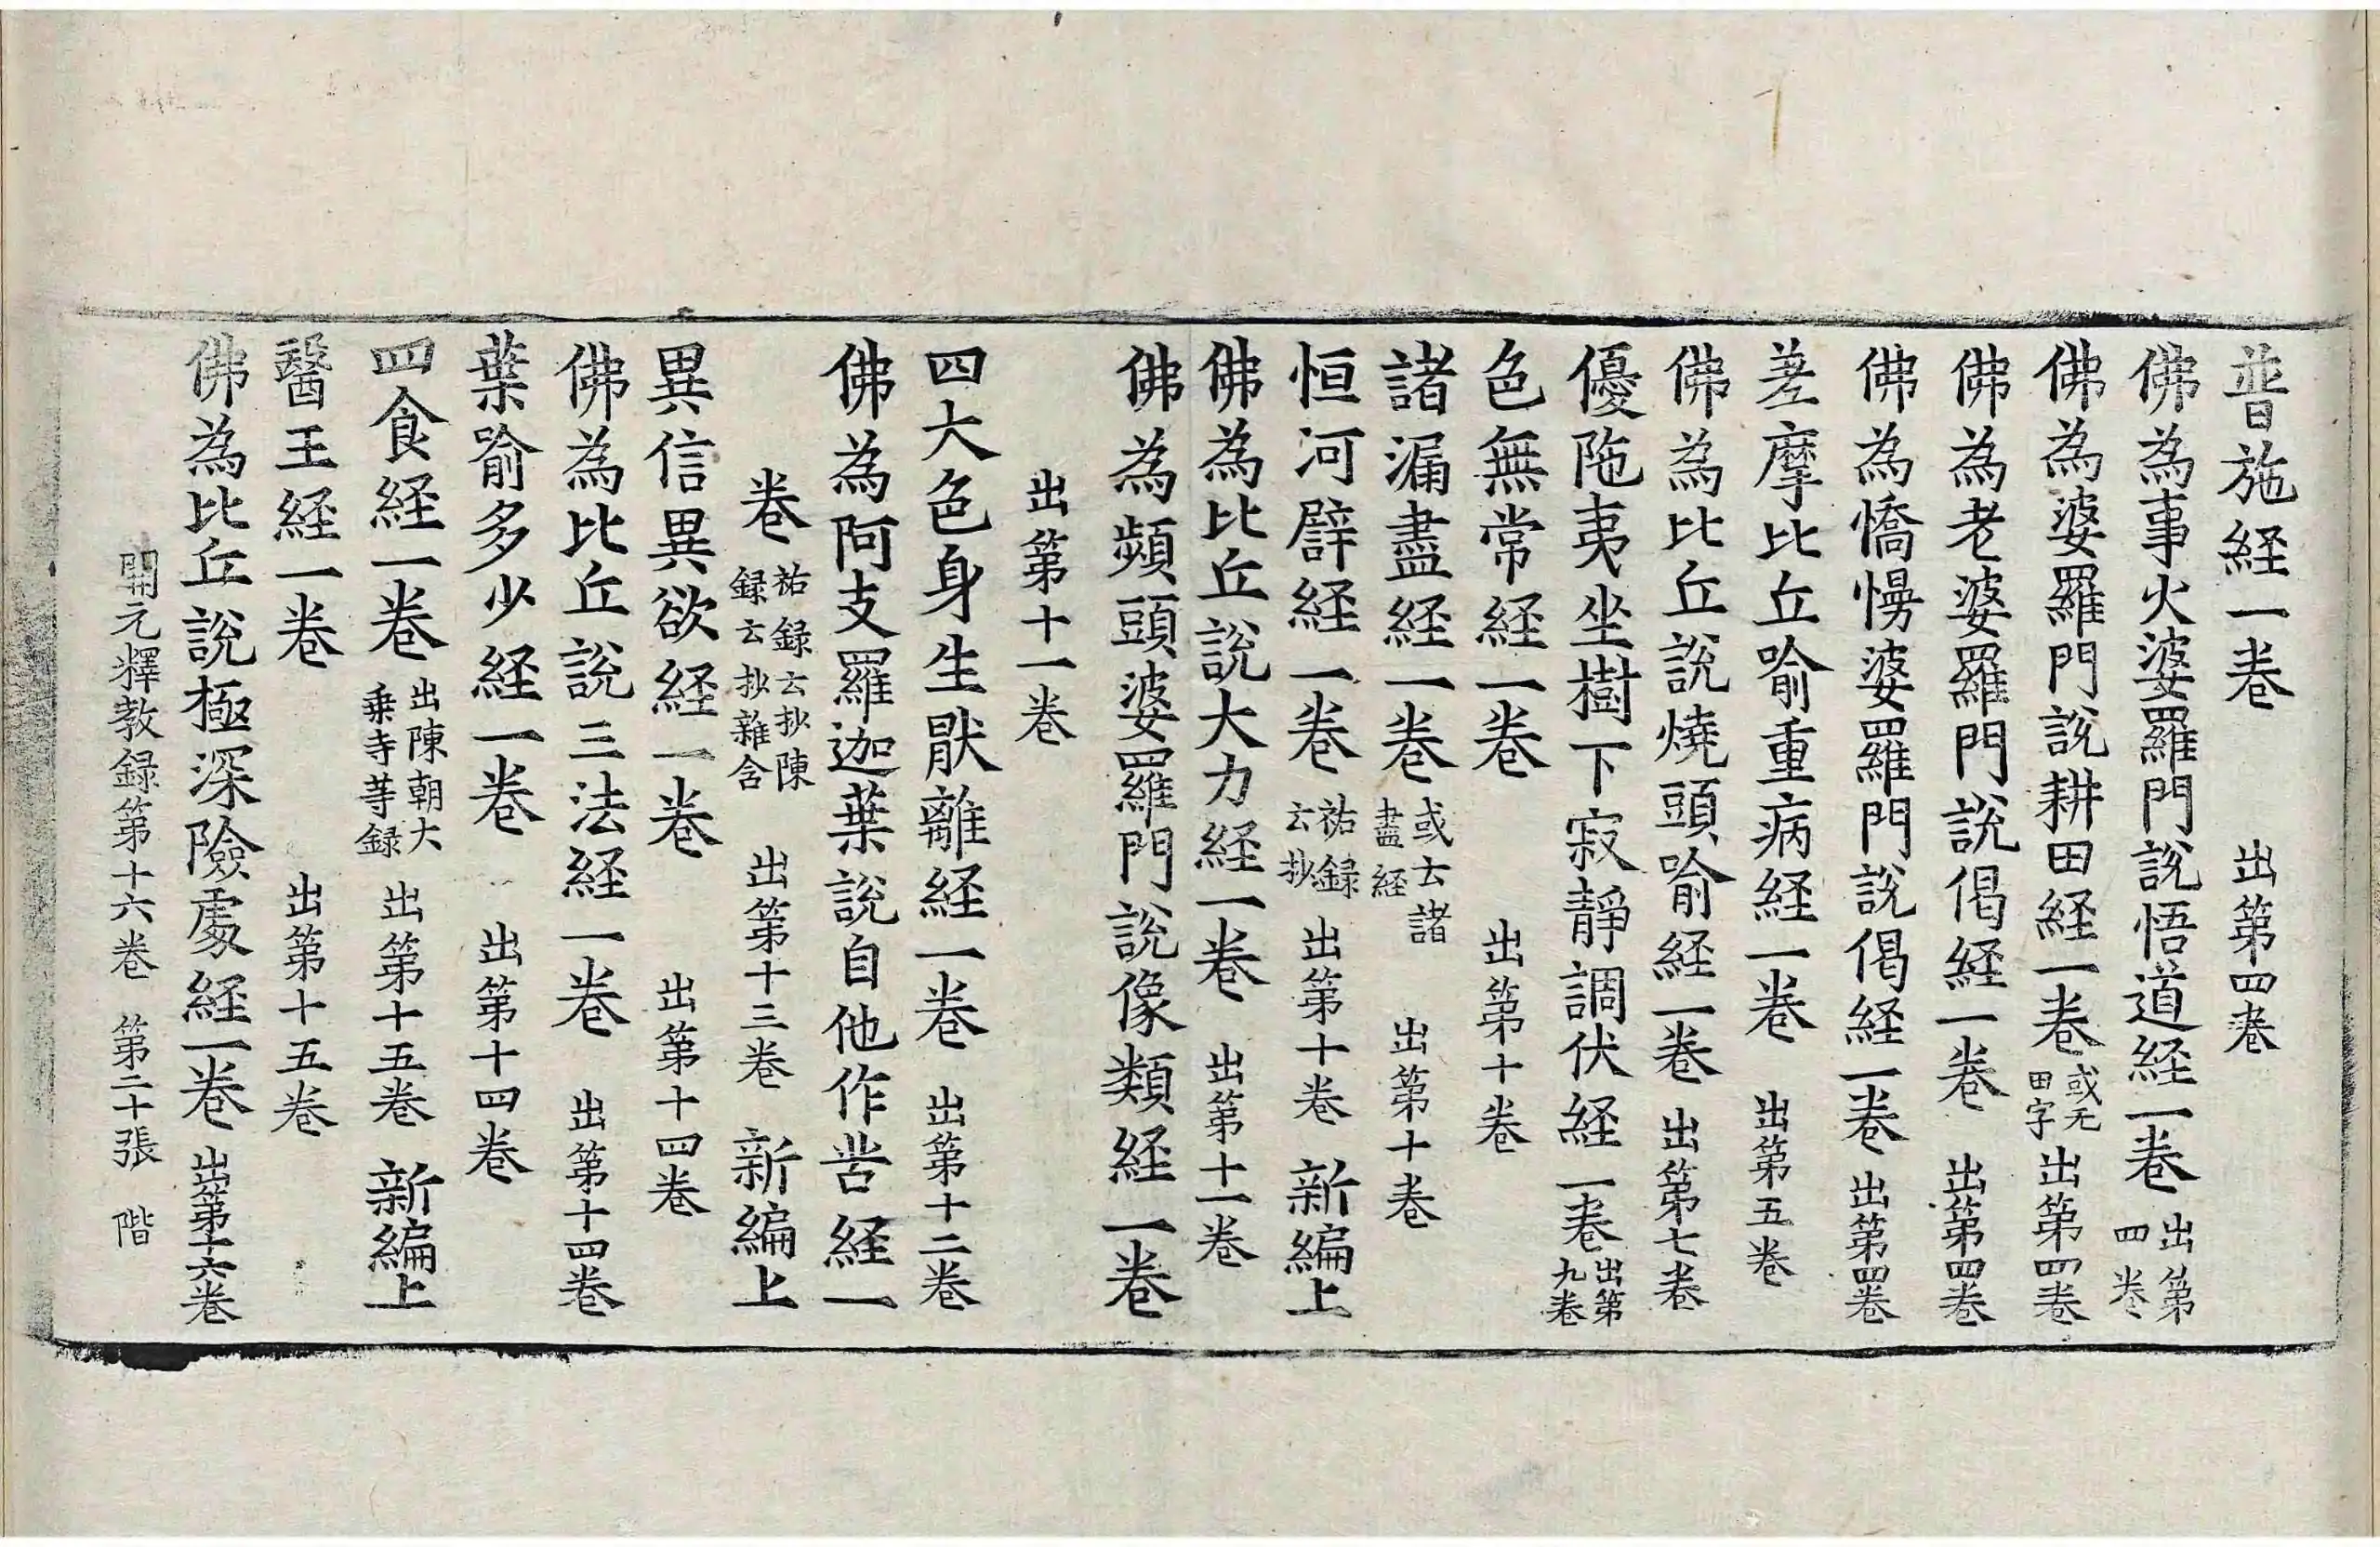 普施経一卷 出第四卷
佛為事火婆羅門說悟道経一卷 出第四卷
佛為婆羅門說耕田経一卷 或无田字 出第四卷
佛為老婆羅門說偈経一卷 出第四卷
佛為憍慢婆羅門說偈経一卷 出第四卷
差摩比丘喻重病経一卷 出第五卷
佛為比丘說燒頭喻経一卷 出第七卷
優陁夷坐樹下寂靜調伏経一卷 出第九卷
色無常経一卷 出第十卷
諸漏盡経一卷 或云諸盡経 出第十卷
恒河辟経一卷 祐録云抄 出第十卷 新編上
佛為比丘說大力経一卷 出第十一卷
佛為頻頭婆羅門說像類経一卷
出第十一卷
四大色身生猒離経一卷 出第十二卷
佛為阿支羅迦葉說自他作苦経一
卷 祐録云抄陳録云抄雜含 出第十三卷 新編上
異信異欲経一卷 出第十四卷
佛為比丘說三法経一卷 出第十四卷
葉喻多少経一卷 出第十四卷
四食経一卷 出陳朝大乗寺䓁録 出第十五卷 新編上
醫王経一卷 出第十五卷
佛為比丘說極深險處経一卷 出第十六卷
開元釋教録第十六卷 第二十張 階